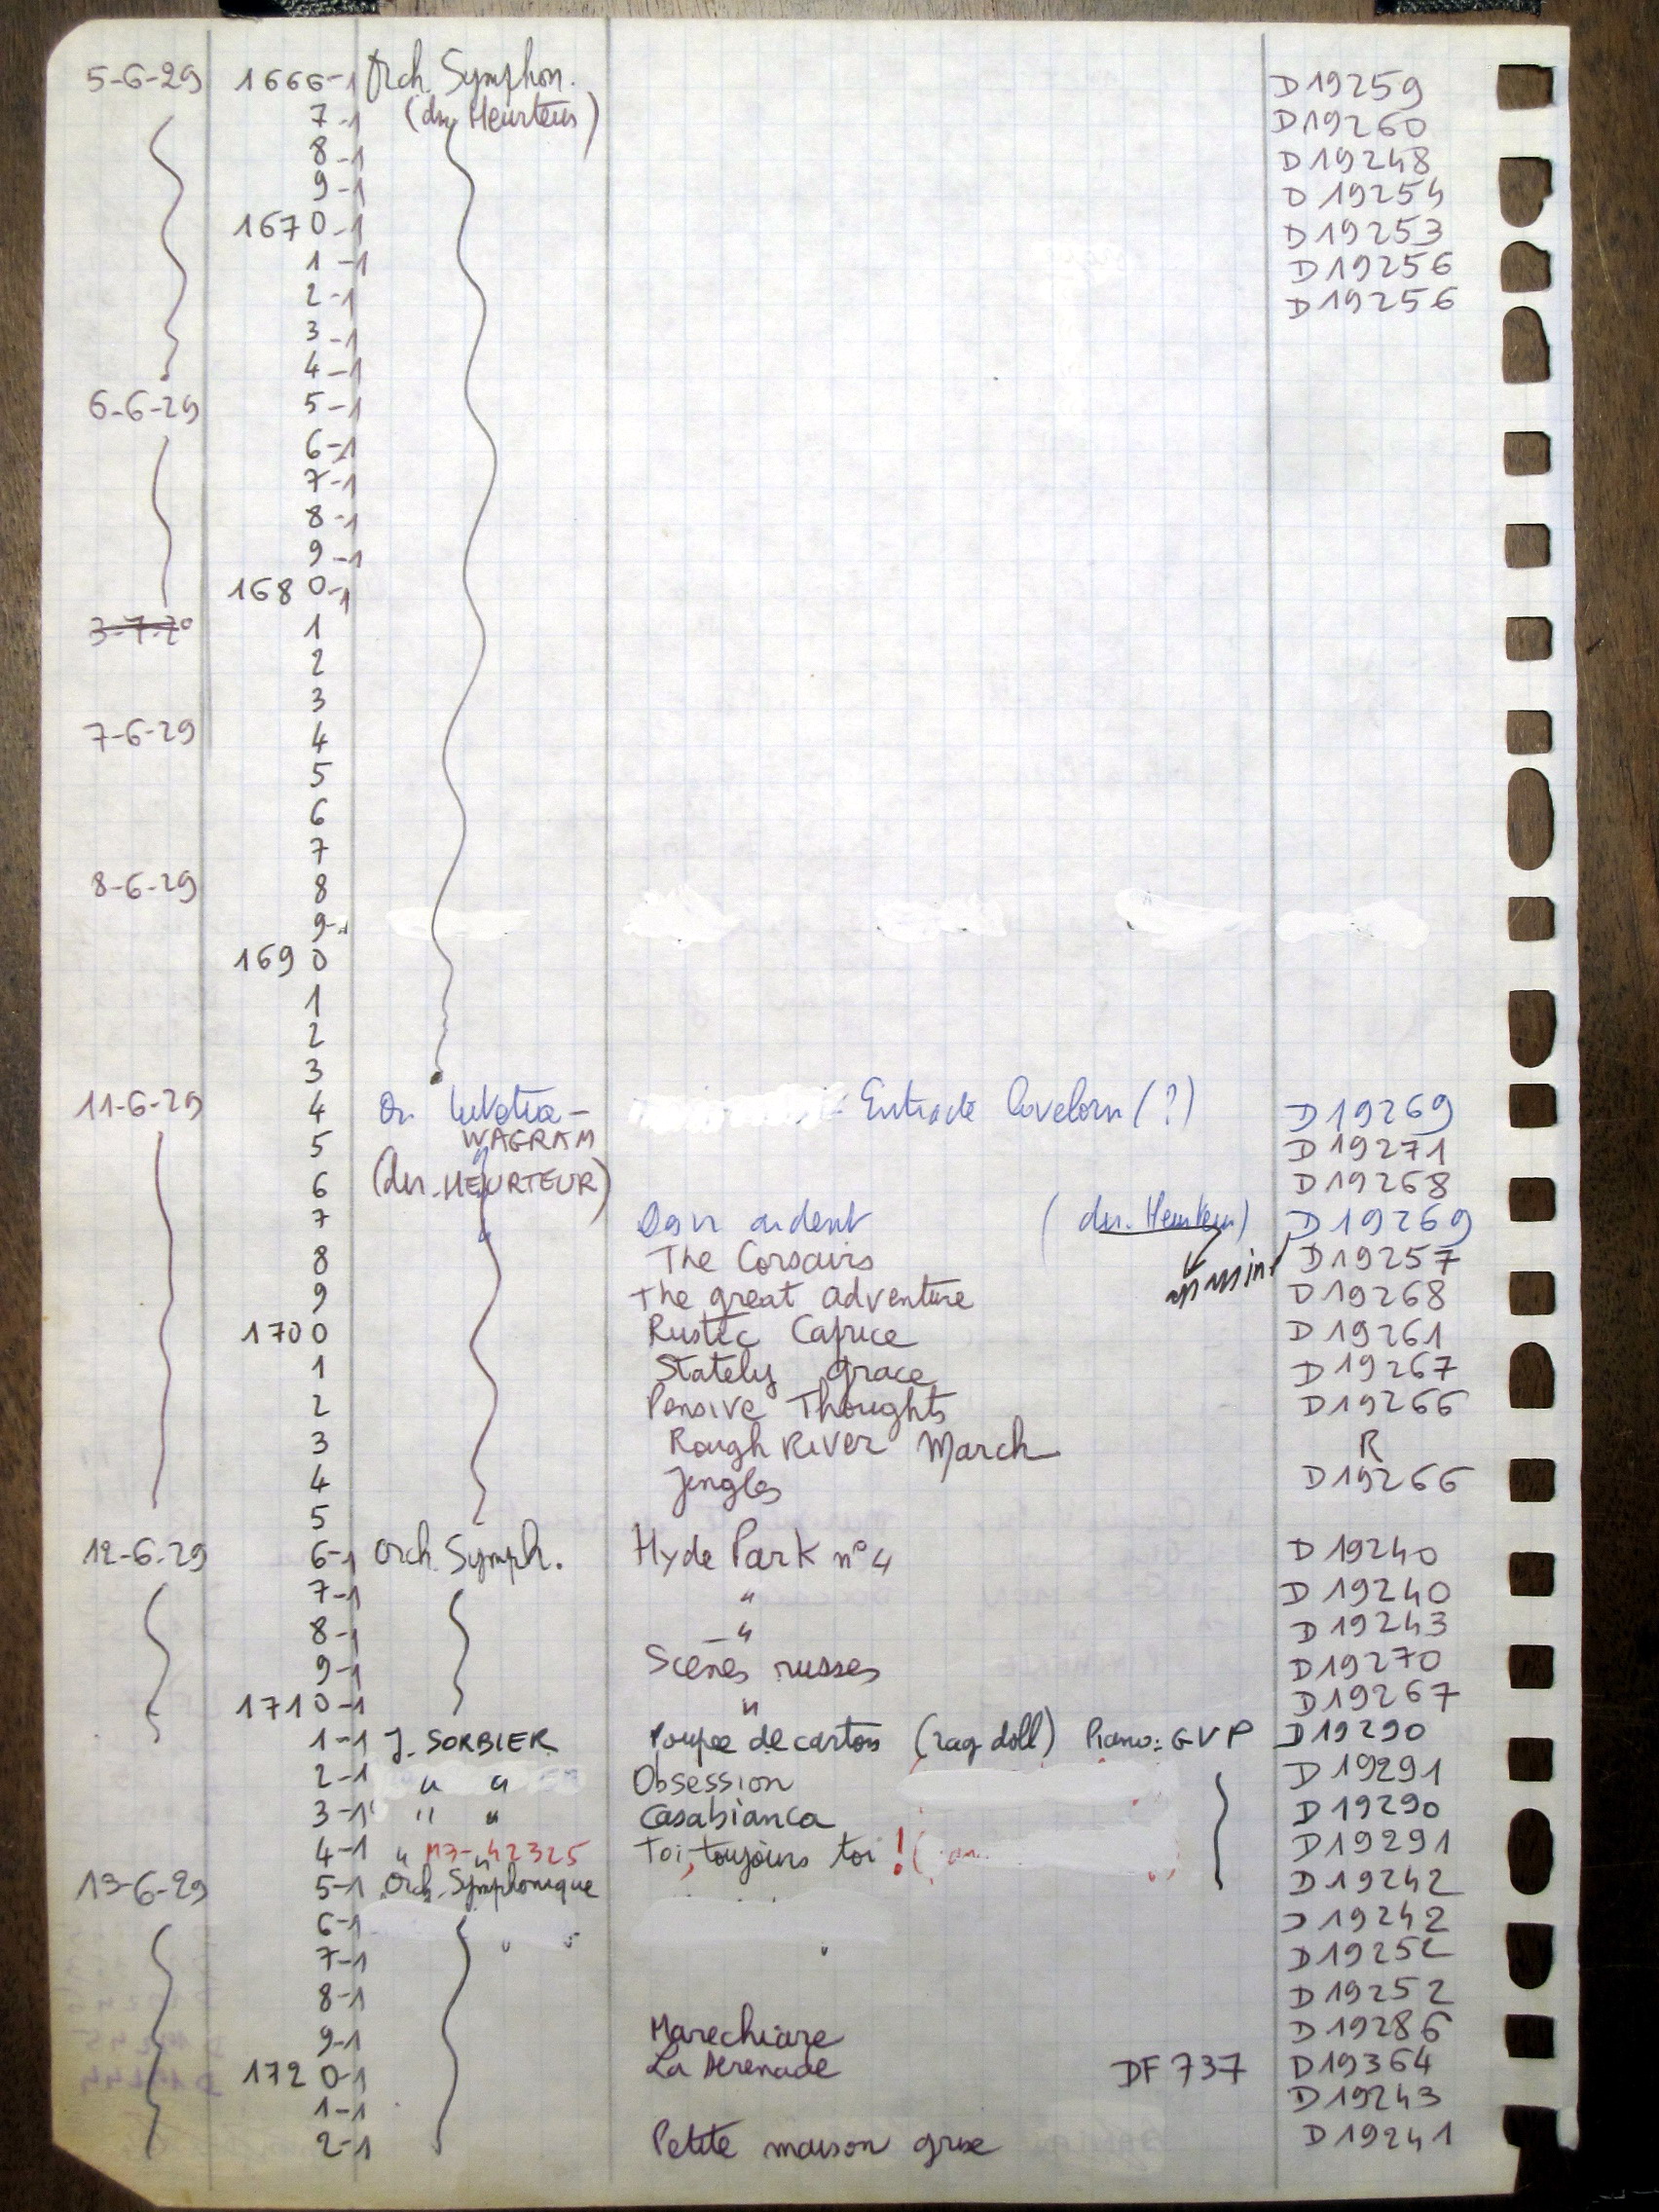 5-6-29 1666-1 Orch. Symphon. D 19259
7-1 (dir. Heurteur) D 19260
8-1 D 19248
9-1 D 19254
1670-1 D 19253
1-1 D 19256
2-1 D 19256
3-1
4-1
6-6-29 5-1
6-1
7-1
8-1
9-1
1680-1
1
2
3
7-6-29 4
5
6
7
8-6-29 8
9-
1690
1
2
3
11-6-29 4 Or. Lutetia- Lovelorn (?) D 19269
5 WAGRAM D 19271
6 (dir. HEURTEUR) D 19268
7 ardent (dir. Heurteur) D 19269
8 The Corsairs D 19257
9 The great adventure D 19268
1700 Rustic Caprice D 19261
1 Stately grace D 19267
2 Pensive Thoughts D 19266
3 Rough River March R
4 Jingles D 19266
5
12-6-29 6-1 Orch. Symph. Hyde Park n° 4 D 19240
7-1 " D 19240
8-1 _ " D 19243
9-1 Scènes russes D 19270
1710-1 " D 19267
1-1 J. SORBIER Poupée de carton (rag doll) Piano: GVP D 19290
2-1 " " Obsession D 19291
3-1 " " Casabianca D 19290
4-1 " M7-42325 Toi, toujours toi ! ( D 19291
13-6-29 5-1 Orch. Symphonique D 19242
6-1 D 19242
7-1 D 19252
8-1 D 19252
9-1 Marechiare D 19286
1720-1 La Serenade DF 737 D 19364
1-1 D 19243
2-1 Petite maison grise D 19241